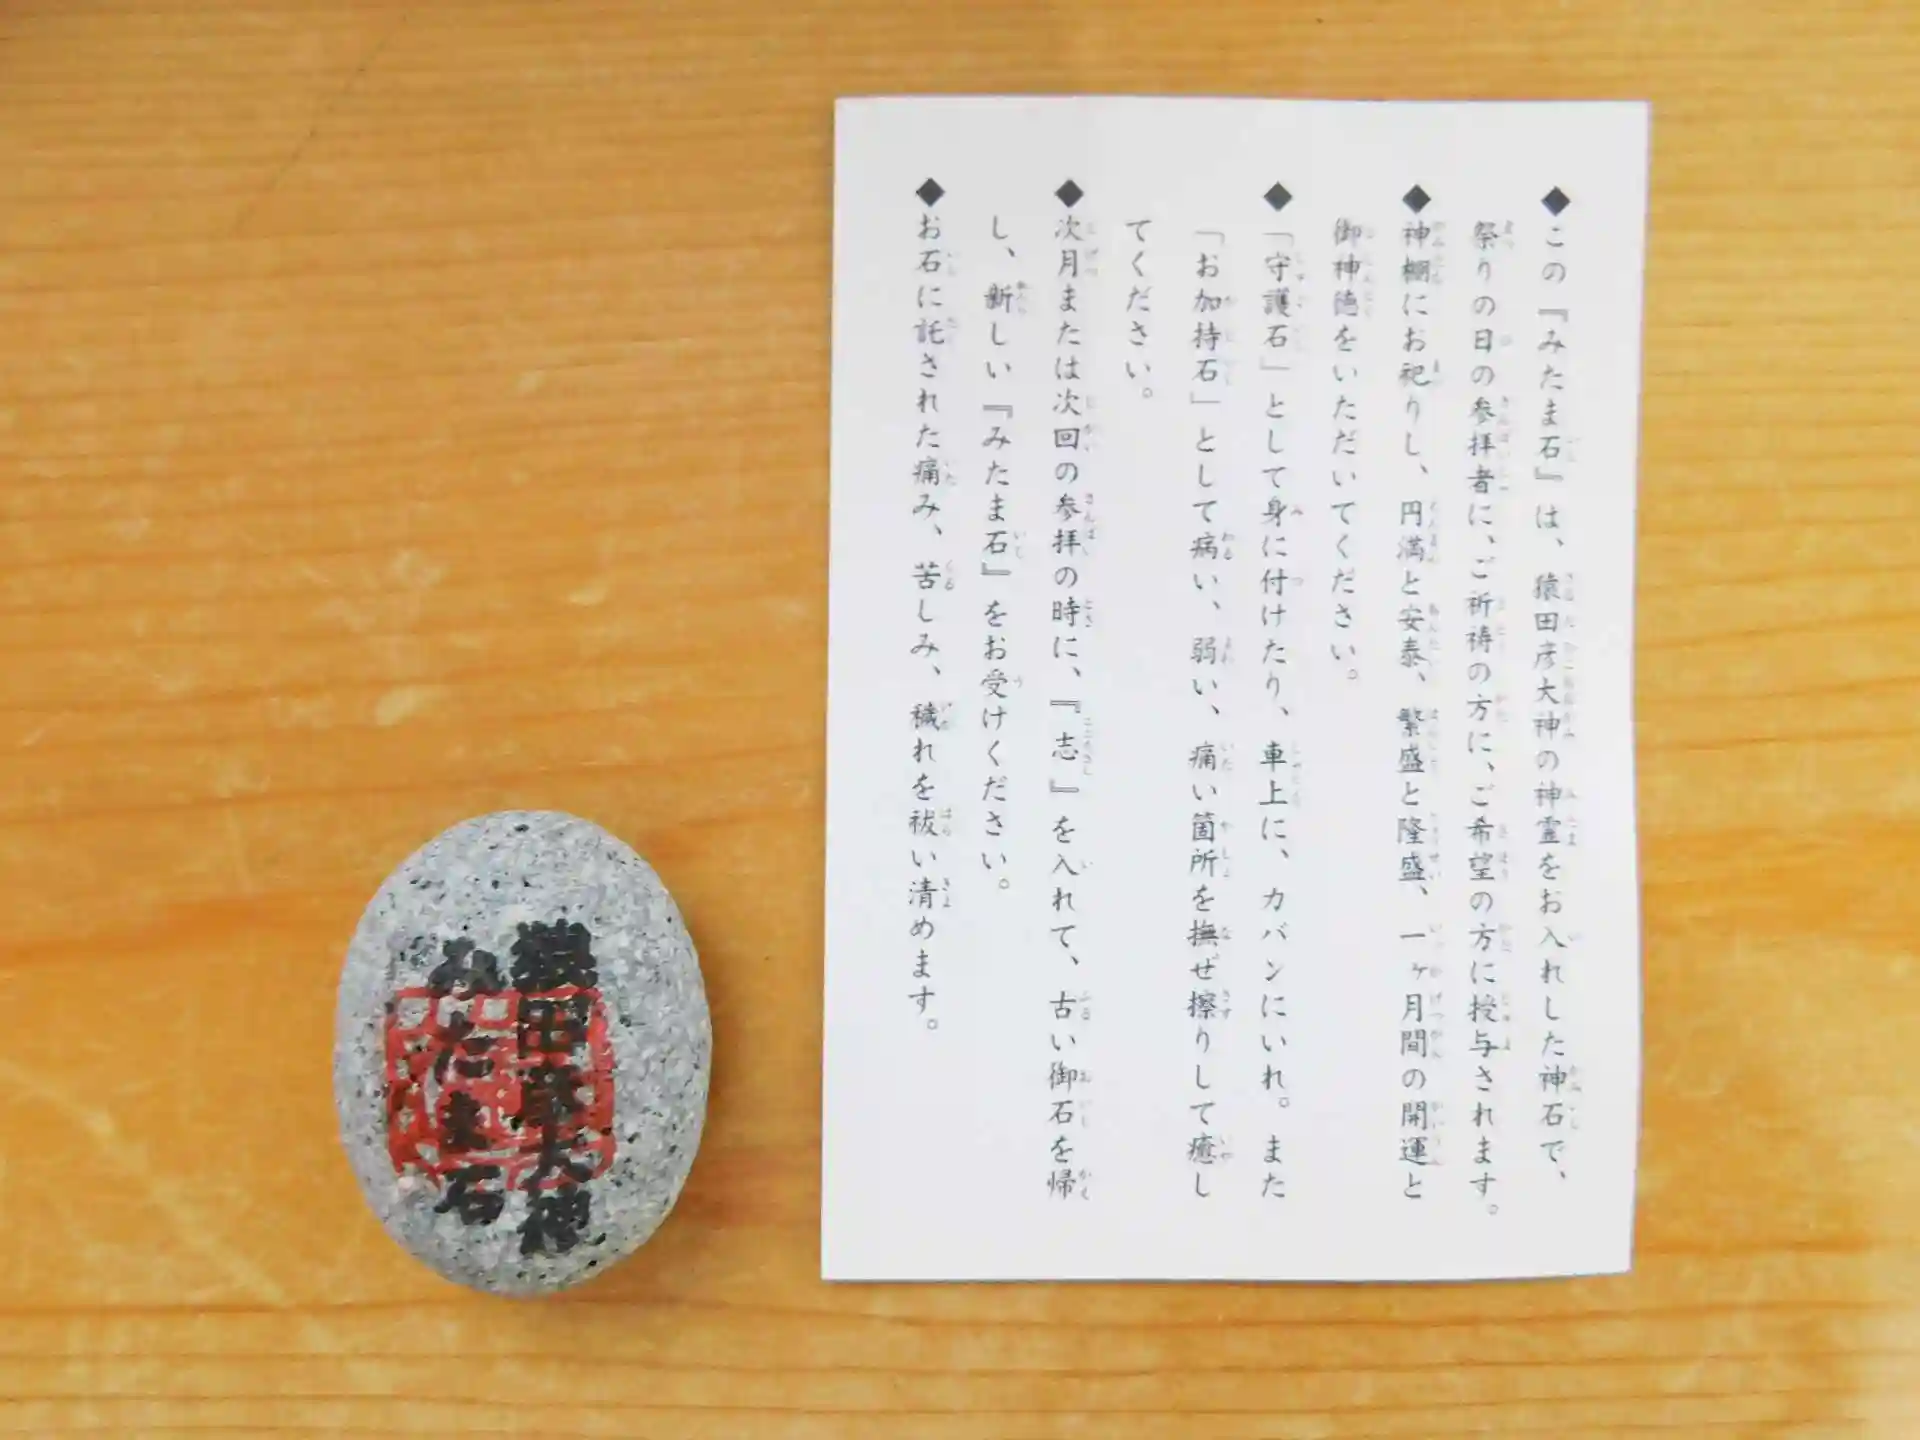 ◆この『みたま石』は、猿田彦大神の神霊をお入れした神石で、
祭りの日の参拝者に、ご祈祷の方に、ご希望の方に授与されます。
◆神棚にお祀りし、円満と安泰、繁盛と隆盛、一ヶ月間の開運と
御神徳をいただいてください。
◆「守護石」として身に付けたり、車上に、カバンにいれ。また
「お加持石」として病い、弱い、痛い箇所を撫ぜ擦りして癒し
てください。
◆次月または次回の参拝の時に、『志』を入れて、古い御石を帰
し、新しい『みたま石』をお受けください。
◆お石に託された痛み、苦しみ、穢れを祓い清めます。
猿田彦大神
みたま石